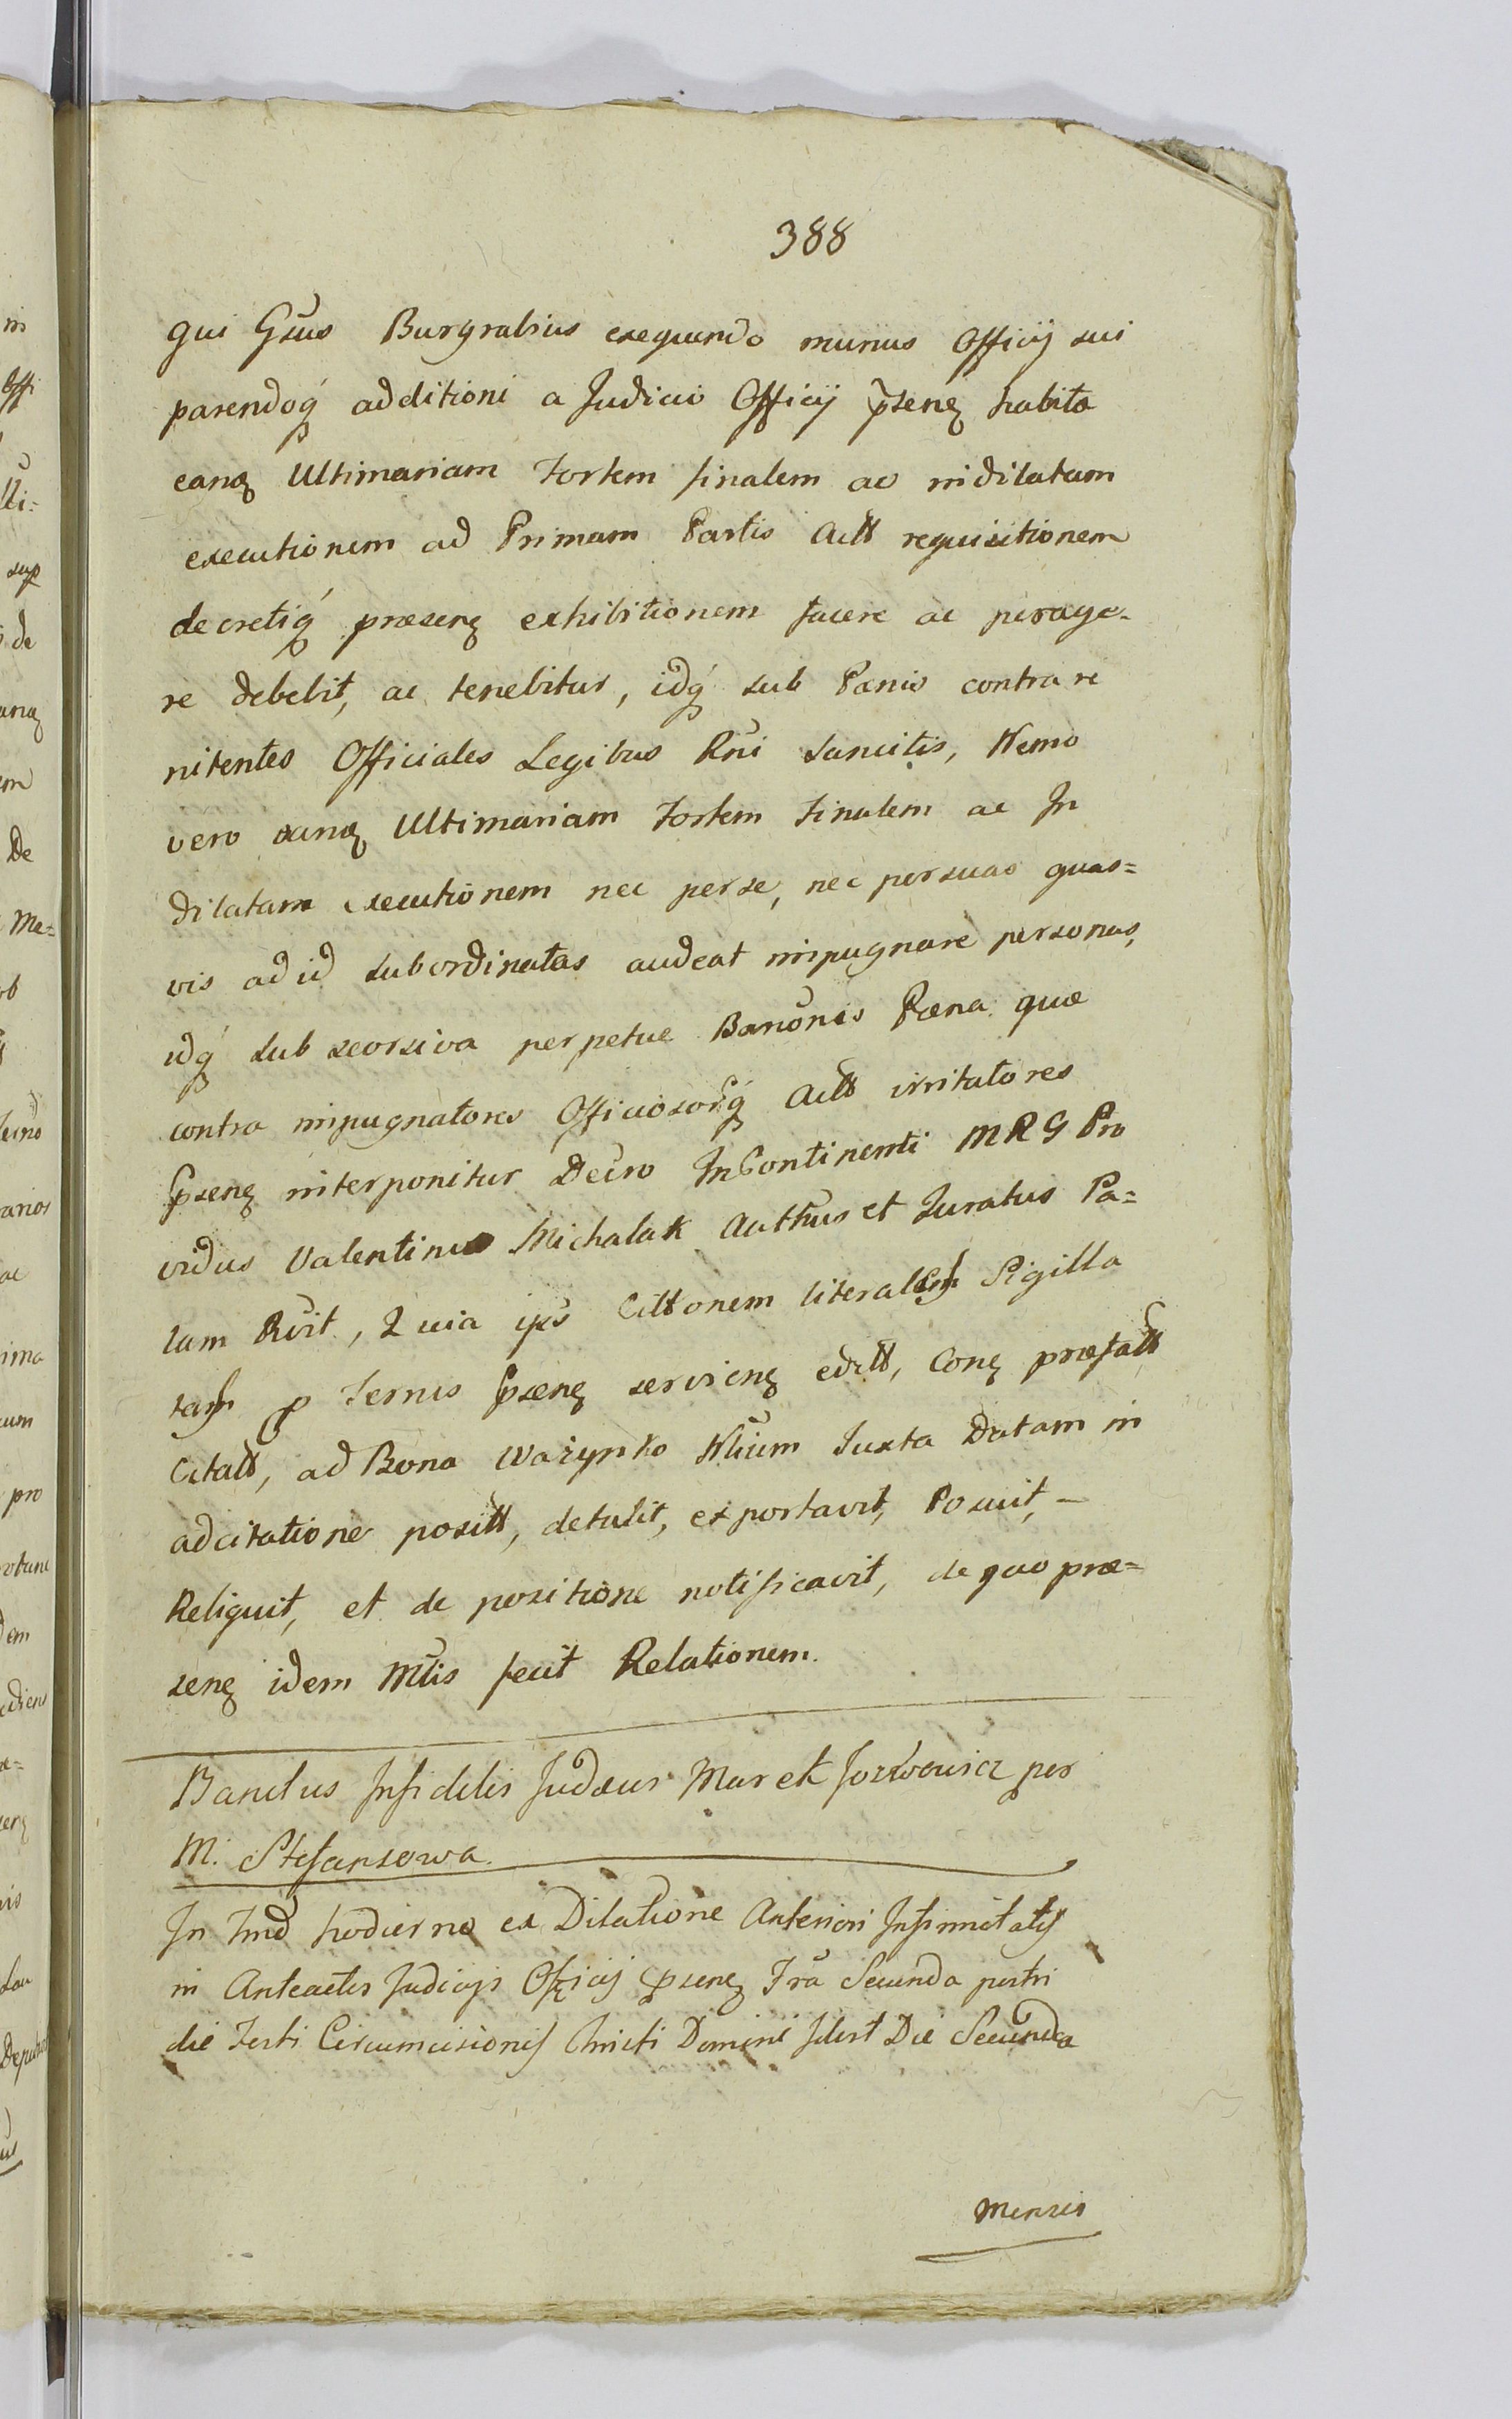 388
qui Gsus Burgrabius exequendo munus Officij sui
parendoq́ additioni a Judicio Officij pseñ habita
eanq Ultimariam Fortem finalem ac indilatam
executionem ad Primam Partis Actt requisitionem
decretiq́ præsenq exhibitionem facere ac perage-
re debebit, ac tenebitur, idq́ sub Pœnis contra re
nitentes Officiales Legibus Rñi sancitis, Nemo
vero eanq Ultimariam Fortem Finalem ac In
dilatam executionem nec per se, nec per suas quas=
vis ad id subordinatas audeat impugnare personas,
idq́ sub seorsiva perpetuæ Banonis Pæna quæ
contra impugnatores Officiosorq́ Actt irritatores
psenq interponitur Decro InContinenti MRG Pro
vidus Valentinus Michalak Autthus et Juratus Pa=
lam Rvit, Quia ips Cittonem literalem Sigilla
tam p Ternis psenq servienq editt, Conq præfatt
Citatt, ad Bona Ważynko Nlium Juxta Datam in
adcitatione positt, detulit, exportavit, Posuit, -
Reliquit, et de positione notificavit, de quo præ=
senq idem Mtlis fecit Relationem.
Banitus Infidelis Judæus Marek Jozwowicz per
M. Stefansowa.
In Tmõ hodierno ex Dilatione Anteriori Infirmitatis
in Anteactis Judicijs Officij psenq Fra Secunda postri
die Festi Circumcisionis Christi Domini Idest Die Secunda
Mensis
ni
Offi
lli=
sup
de
anq
em
De
Me=
anos
ac
ima
cum
pro
dem
adiens
is
Lau